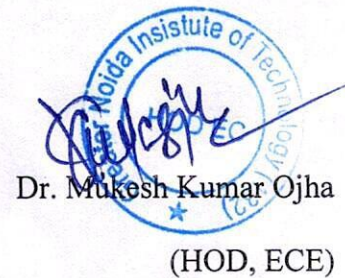 Greater Noida Insistute of Technology (132)
HOD EC
Dr. Mukesh Kumar Ojha
(HOD, ECE)